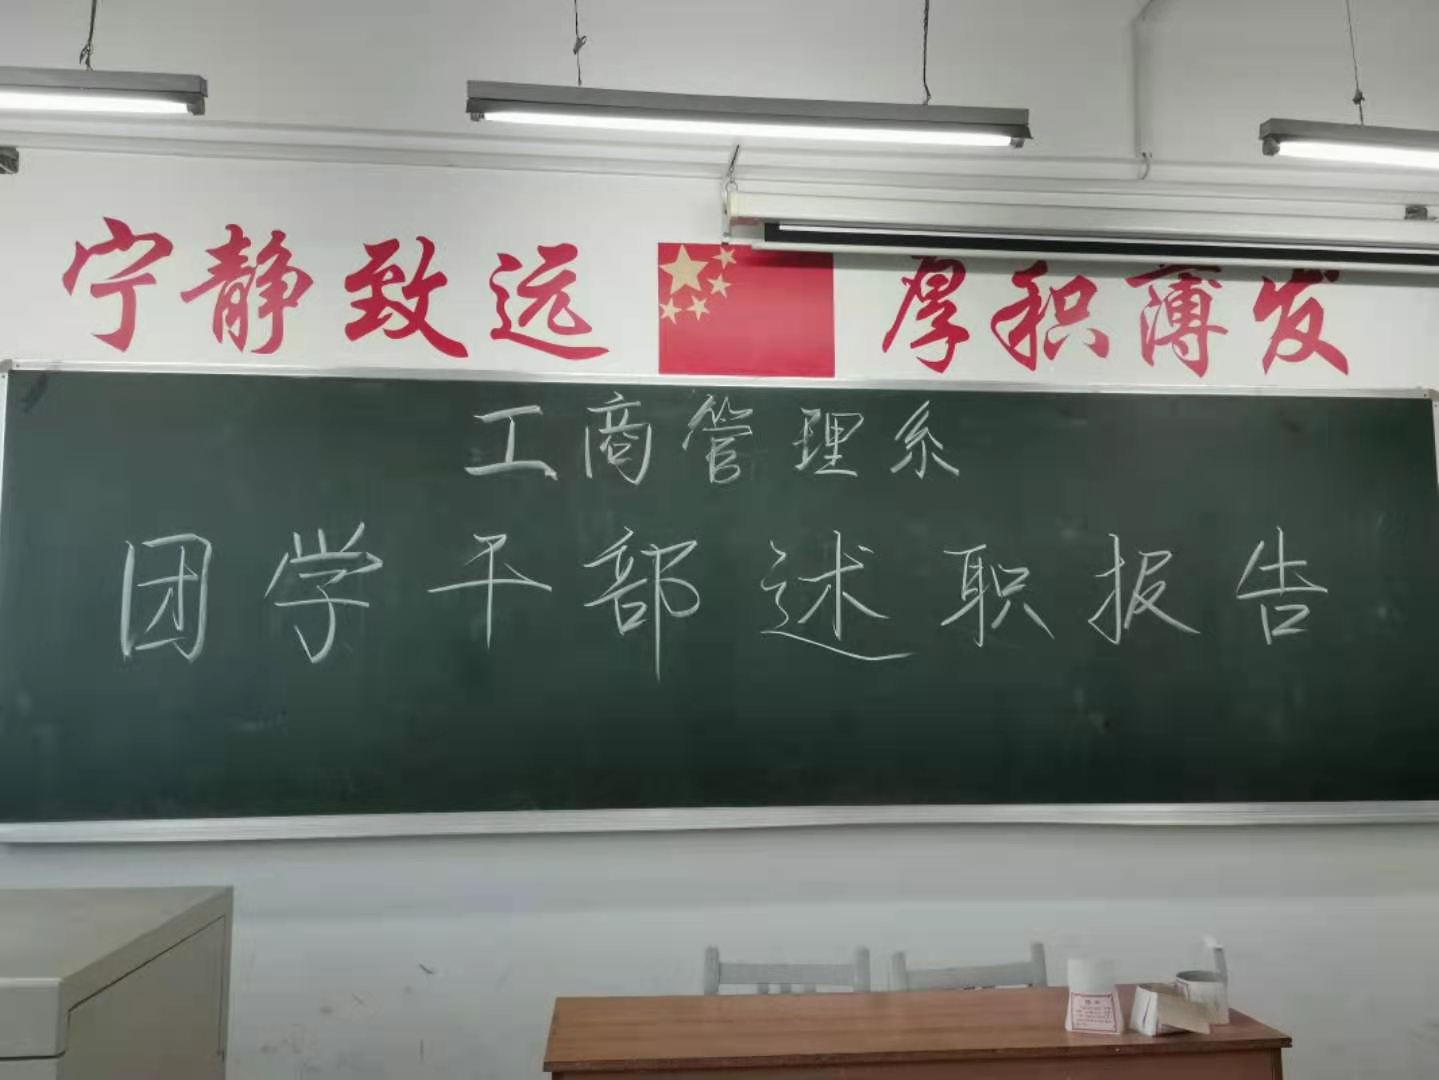 宁静致远 厚积薄发
工商管理系
团学干部述职报告